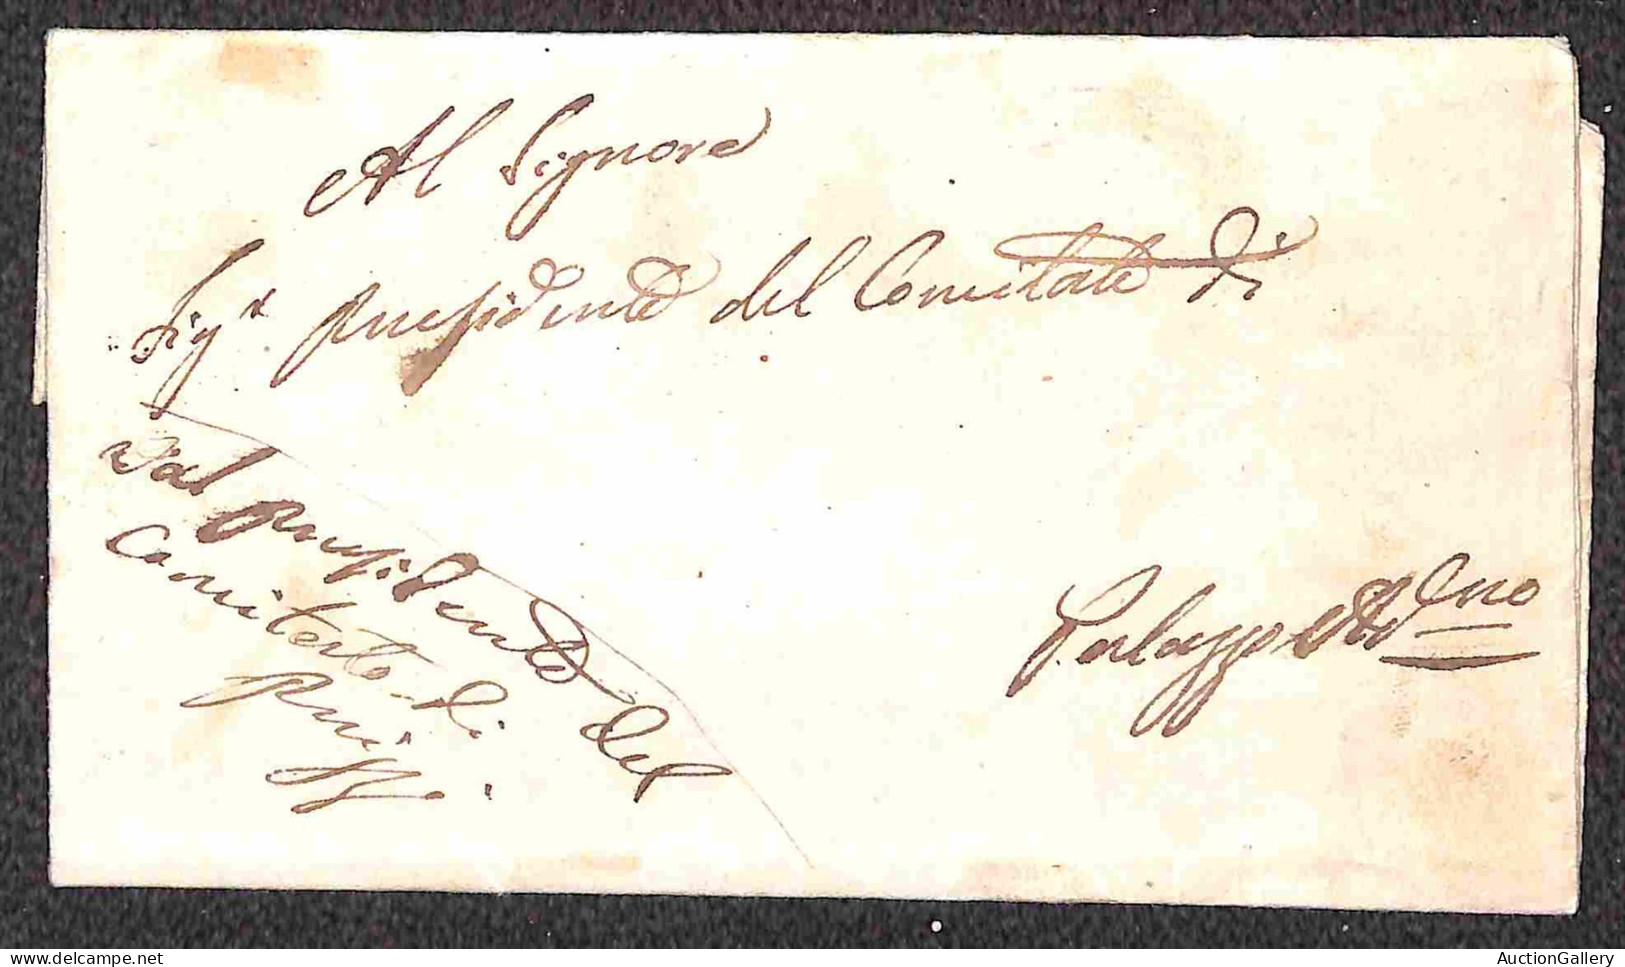 Al Signore
Sigr Presidente del Comitato di
Palazzo Adriano
Dal Presidente del
Comitato di
Prizzi
AuctionGallery